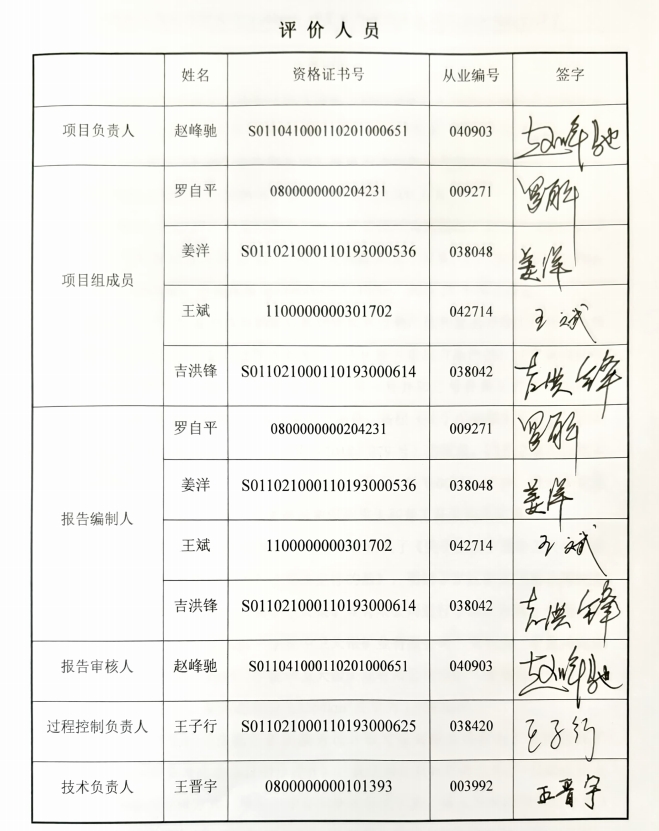 评价人员
姓名 资格证书号 从业编号 签字
项目负责人 赵峰驰 S011041000110201000651 040903 赵峰驰
项目组成员 罗自平 0800000000204231 009271
姜洋 S011021000110193000536 038048 姜洋
王斌 1100000000301702 042714 王斌
吉洪锋 S011021000110193000614 038042 吉洪锋
报告编制人 罗自平 0800000000204231 009271
姜洋 S011021000110193000536 038048 姜洋
王斌 1100000000301702 042714 王斌
吉洪锋 S011021000110193000614 038042 吉洪锋
报告审核人 赵峰驰 S011041000110201000651 040903 赵峰驰
过程控制负责人 王子行 S011021000110193000625 038420 王子行
技术负责人 王晋宇 0800000000101393 003992 王晋宇